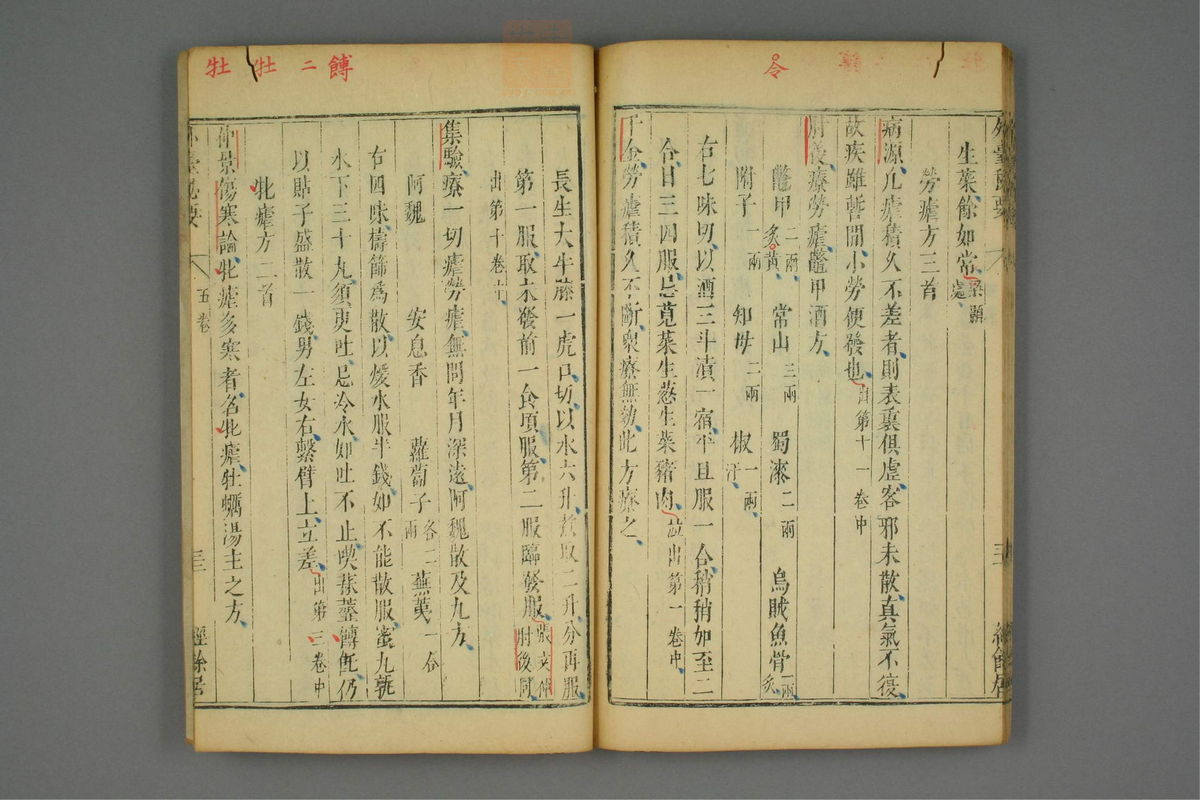 令
生菜餘如常
勞瘧方三首
病源凡瘧積久不差者則表裏俱虛客邪未散真氣不復
故疾雖暫間小勞便發也出第十一卷中
肘後療勞瘧鼈甲酒方
鼈甲二兩炙黃 常山三兩 蜀漆二兩 烏賊魚骨一兩炙
附子一兩 知母二兩 椒一兩汗
右七味切以酒三斗漬一宿平旦服一合稍稍加至二
合日三四服忌莧菜生葱生菜豬肉並出第一卷中
千金勞瘧積久不斷衆療無効此方療之
餺 二 牡 牡
長生大牛膝一虎口切以水六升煮取二升分再服
第一服取未發前一食頃服第二服臨發服張文仲肘後同
出第十卷中
集驗療一切瘧勞瘧無問年月深遠阿魏散及丸方
阿魏 安息香 蘿蔔子各二兩 蕪荑一合
右四味擣篩爲散以煖水服半錢如不能散服蜜丸熟
水下三十丸須臾吐忌冷水如吐不止喫蒸薑餺飥仍
以貼子盛散一錢男左女右繫臂上立差出第三卷中
牝瘧方二首
仲景傷寒論牝瘧多寒者名牝瘧牡蠣湯主之方
五卷 三 經餘居